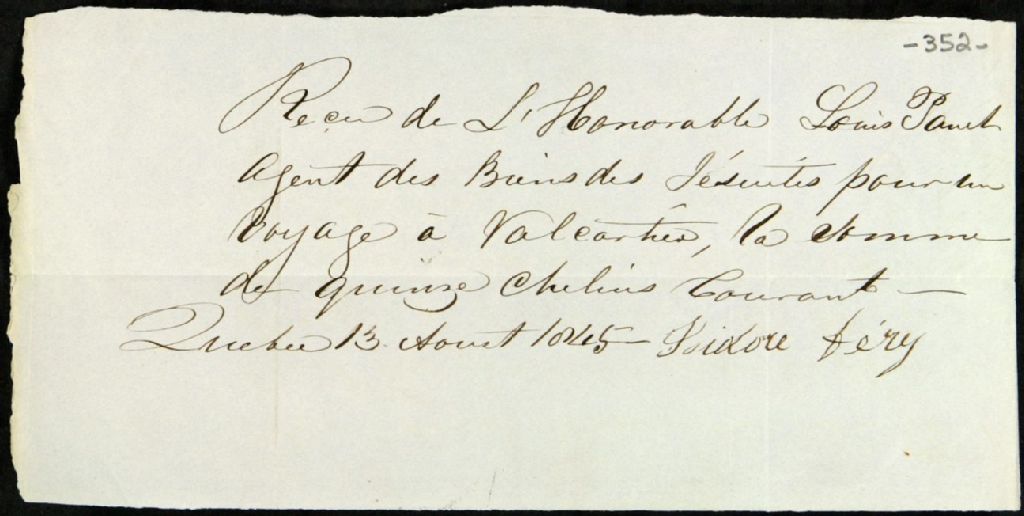 -352-
Reçu de L'Honorable Louis Panet
Agent des Biens des Jésuites pour un
Voyage à Valcartier, la somme
de quinze Chelins Courant —
Quebec 13 Aout 1845 — Isidore féry